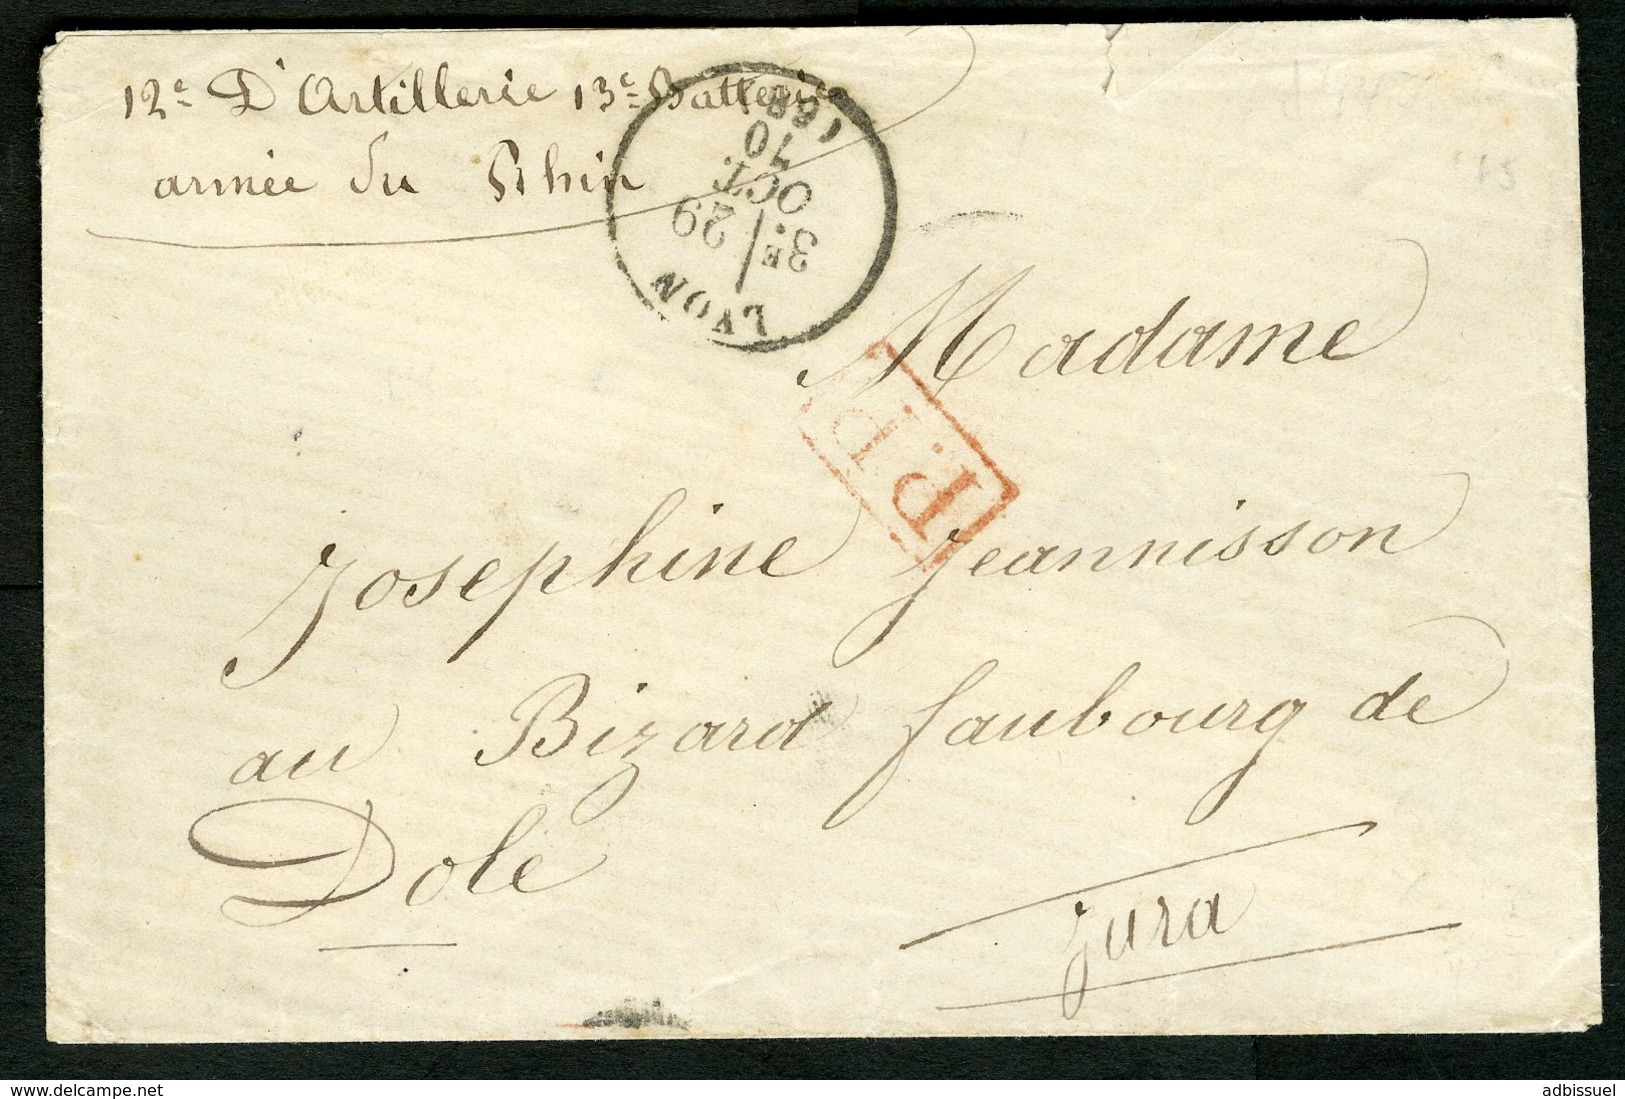 12e D'Artillerie 13e Batterie
armée du Rhin
LYON
3E / 29
OCT.
70
(68)
Madame
P.P.
Josephine Jeannisson
au Bizard faubourg de
Dole
Jura
adbissuel